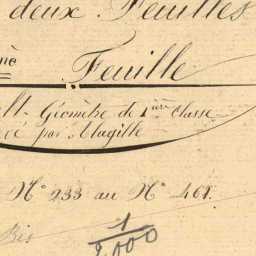 deux Feuilles
Feuille
Géomètre de 1ère classe
par Magille
Nº 233 au Nº 461.
Bis
1
8,000